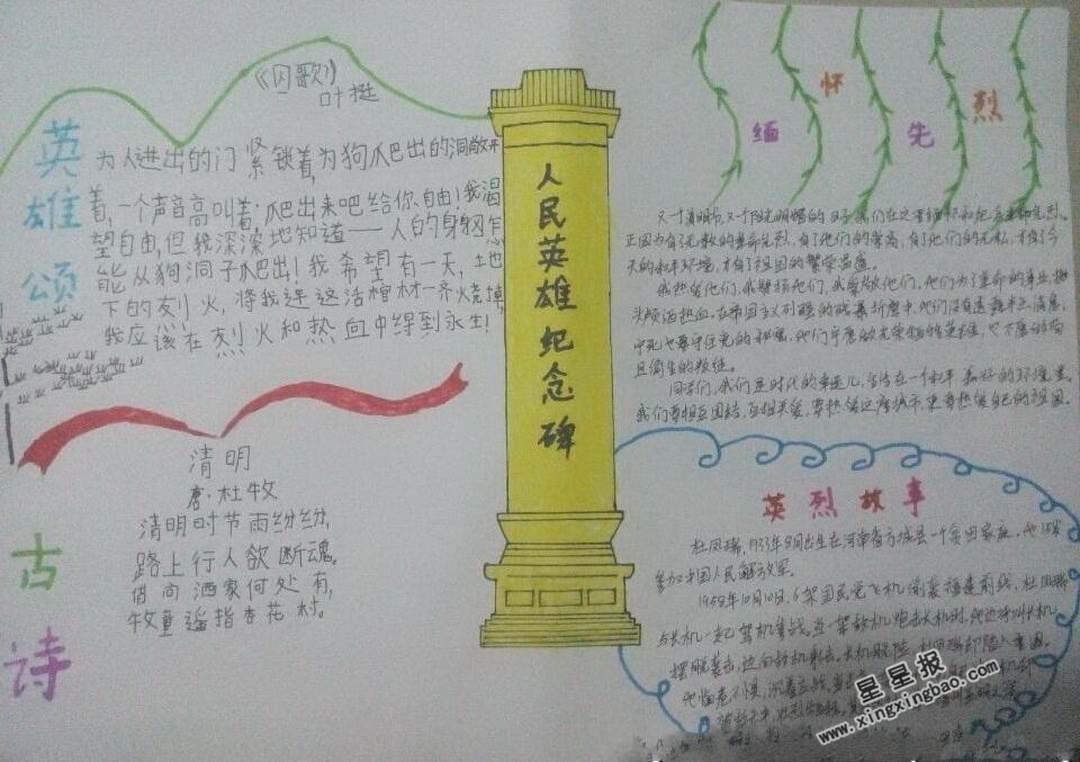 英雄颂
《囚歌》
叶挺
为人进出的门紧锁着,为狗爬出的洞敞开
着,一个声音高叫着:爬出来吧给你自由!我渴
望自由,但我深深地知道——人的身躯怎
能从狗洞子爬出!我希望有一天,地
下的烈火,将我连这活棺材一齐烧掉,
我应该在烈火和热血中得到永生!
古诗
清明
唐·杜牧
清明时节雨纷纷,
路上行人欲断魂。
借问酒家何处有,
牧童遥指杏花村。
人民英雄纪念碑
缅怀先烈
又一个清明节,又一个阳光明媚的日子,我们在这里缅怀和纪念革命先烈。
正因为有了无数的革命先烈,有了他们的崇高,有了他们的无私,才有了今
天的和平环境,才有了祖国的繁荣昌盛。
我热爱他们,我赞颂他们,我崇敬他们,他们为了革命的事业,抛
头颅洒热血,在帝国主义列强的残暴折磨中,他们没有透露半点消息,
宁死也要守住党的秘密,他们宁愿做光荣牺牲的英雄,也不愿做苟
且偷生的叛徒。
同学们,我们是时代的幸运儿,生活在一个和平、美好的环境里。
我们要相互团结,互相关爱,要热爱这座城市,更要热爱自己的祖国。
英烈故事
杜凤瑞,1933年8月出生在河南省方城县一个贫困家庭,他15岁
参加中国人民解放军。
1958年10月10日,6架国民党飞机偷袭福建前线,杜凤瑞
与长机一起驾机迎战。当一架敌机炮击长机时,他边呼叫长机
摆脱袭击,边向敌机射击。长机脱险
他临危不惧,沉着应战,
星星报
www.xingxingbao.com